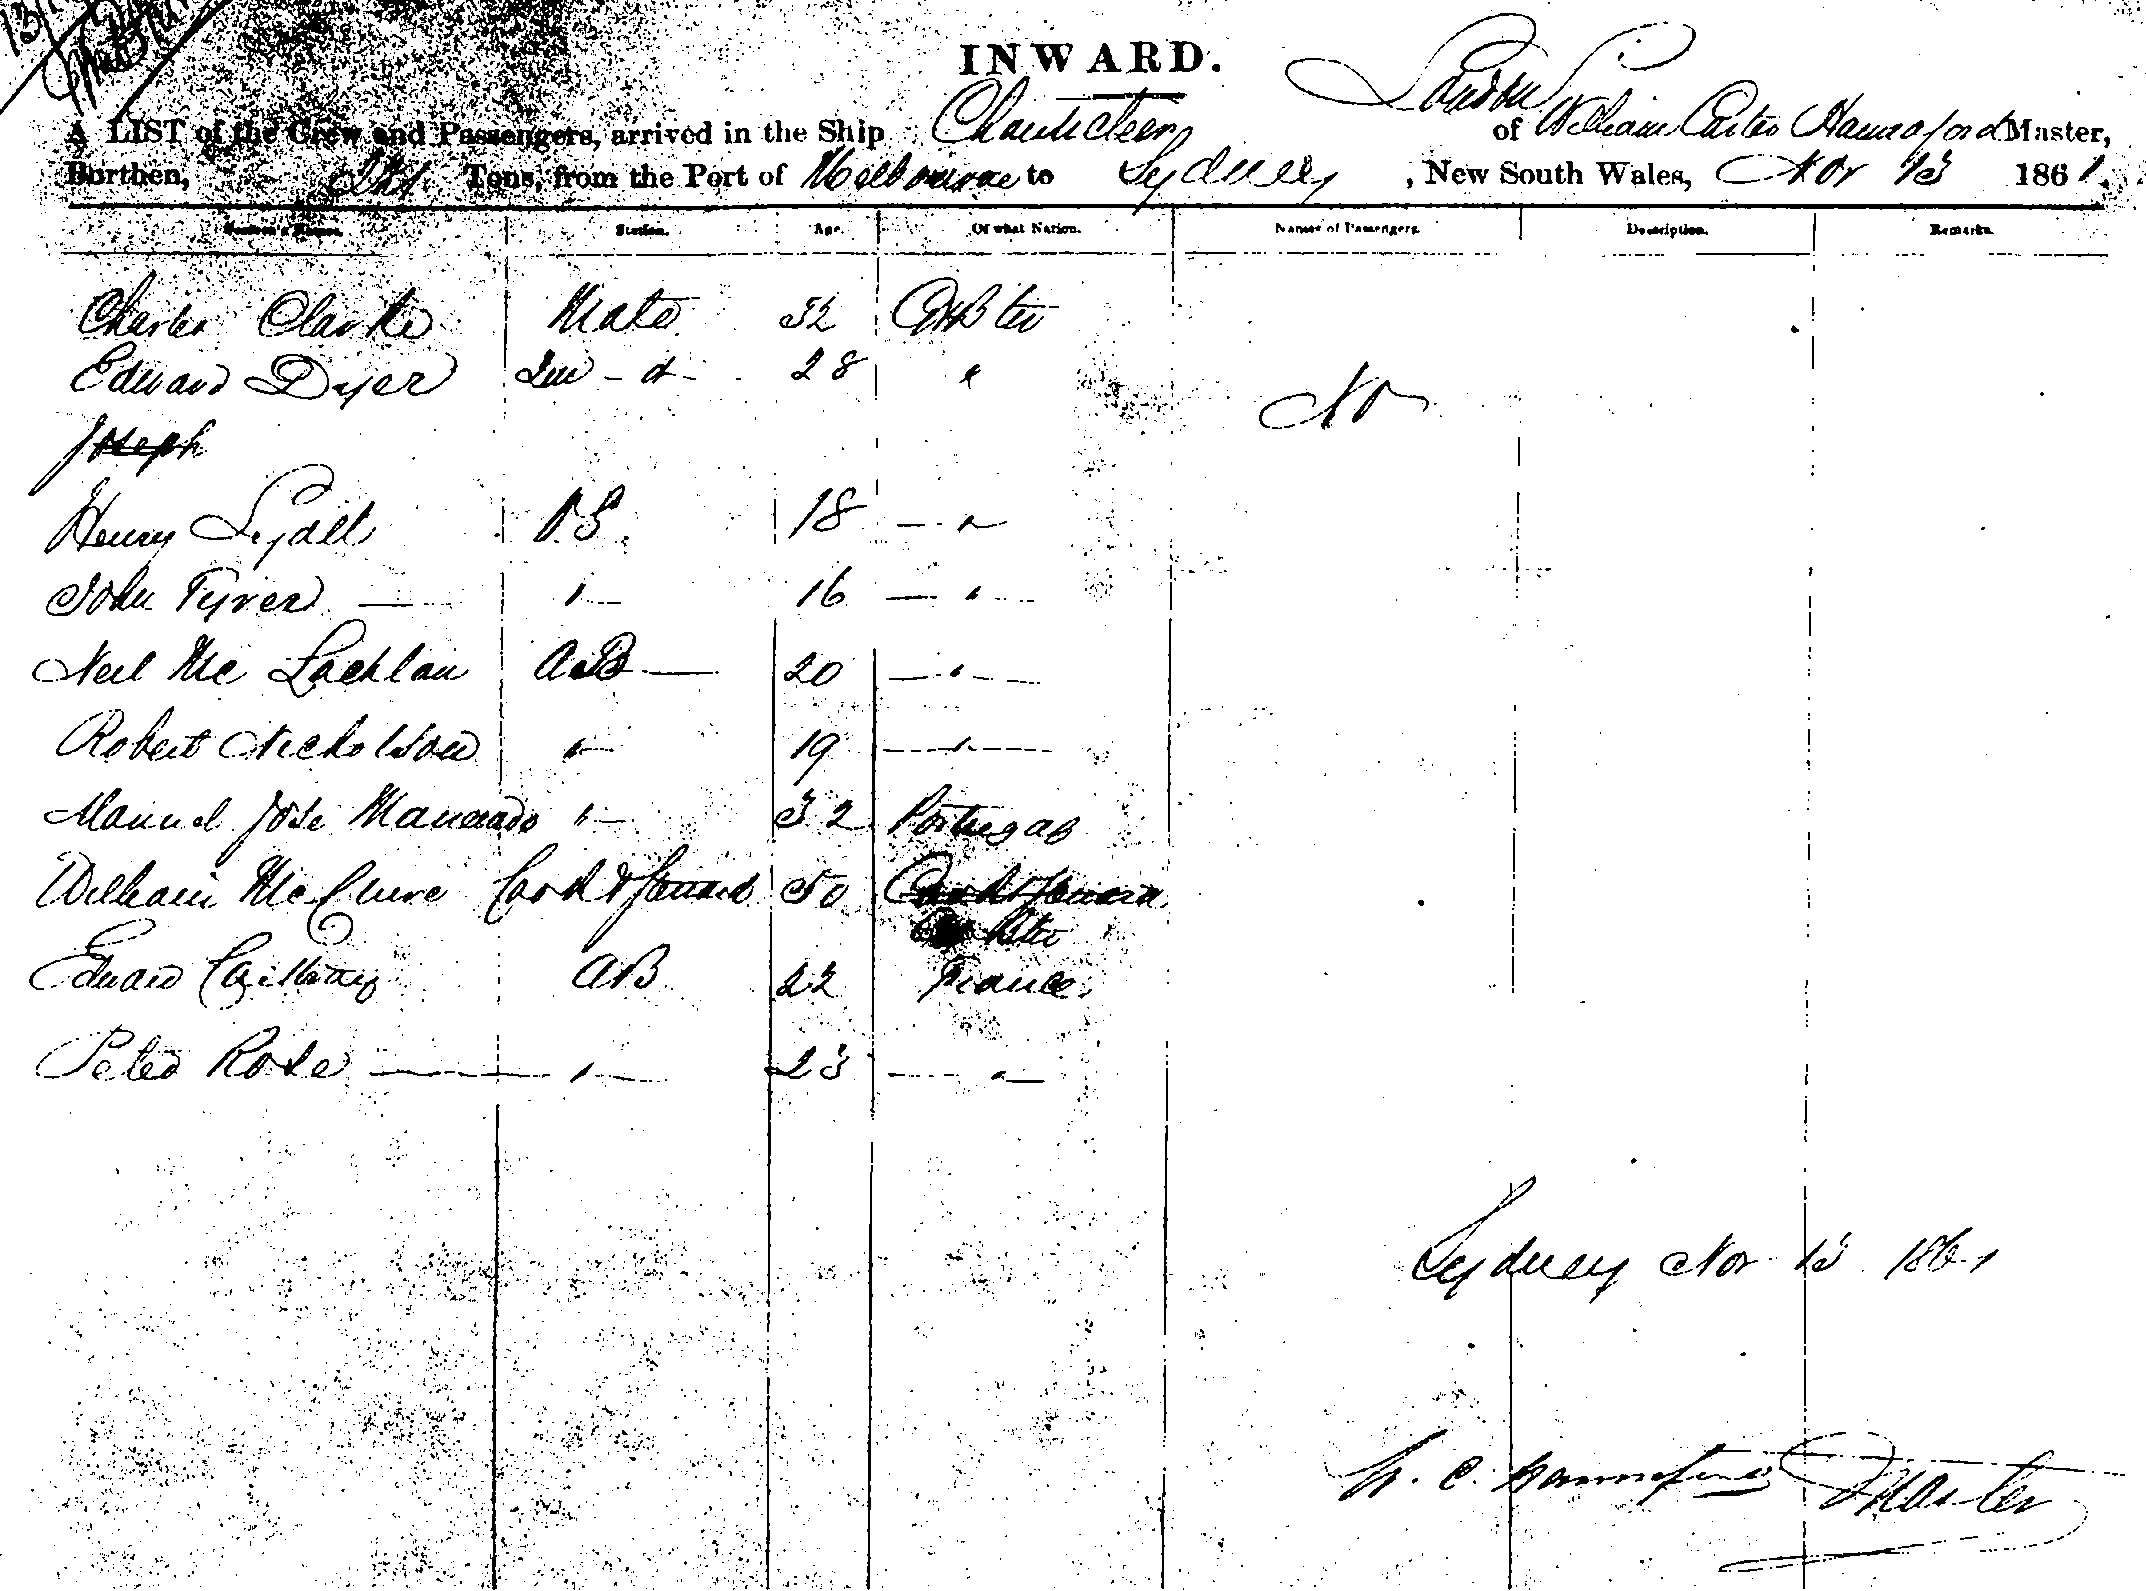 INWARD.
A LIST of the Crew and Passengers, arrived in the Ship Chanticleer of London William Carter Hannaford Master,
Burthen, Tons, from the Port of Melbourne to Sydney, New South Wales, Nov 13 1861.
Seamen's Names. Station. Age. Of what Nation. Names of Passengers. Description. Remarks.
Charles Clarke Mate 32 Gt Btn
Edward Dyer 28 "
No
Joseph
Henry Lydall OS 18 — "
John Tyrer — " — 16 — " —
Neil Mc Lachlan AB — 20 — " —
Robert Nicholson " — 19 — " —
Manuel Jose " — 32 Portugal
William McClure Cook & Steward 50 Cook & Steward
Btn
Edward AB 22 France
Peter Rose — " — 23 — " —
Sydney Nov 13 1861
W. C. Hannaford Master